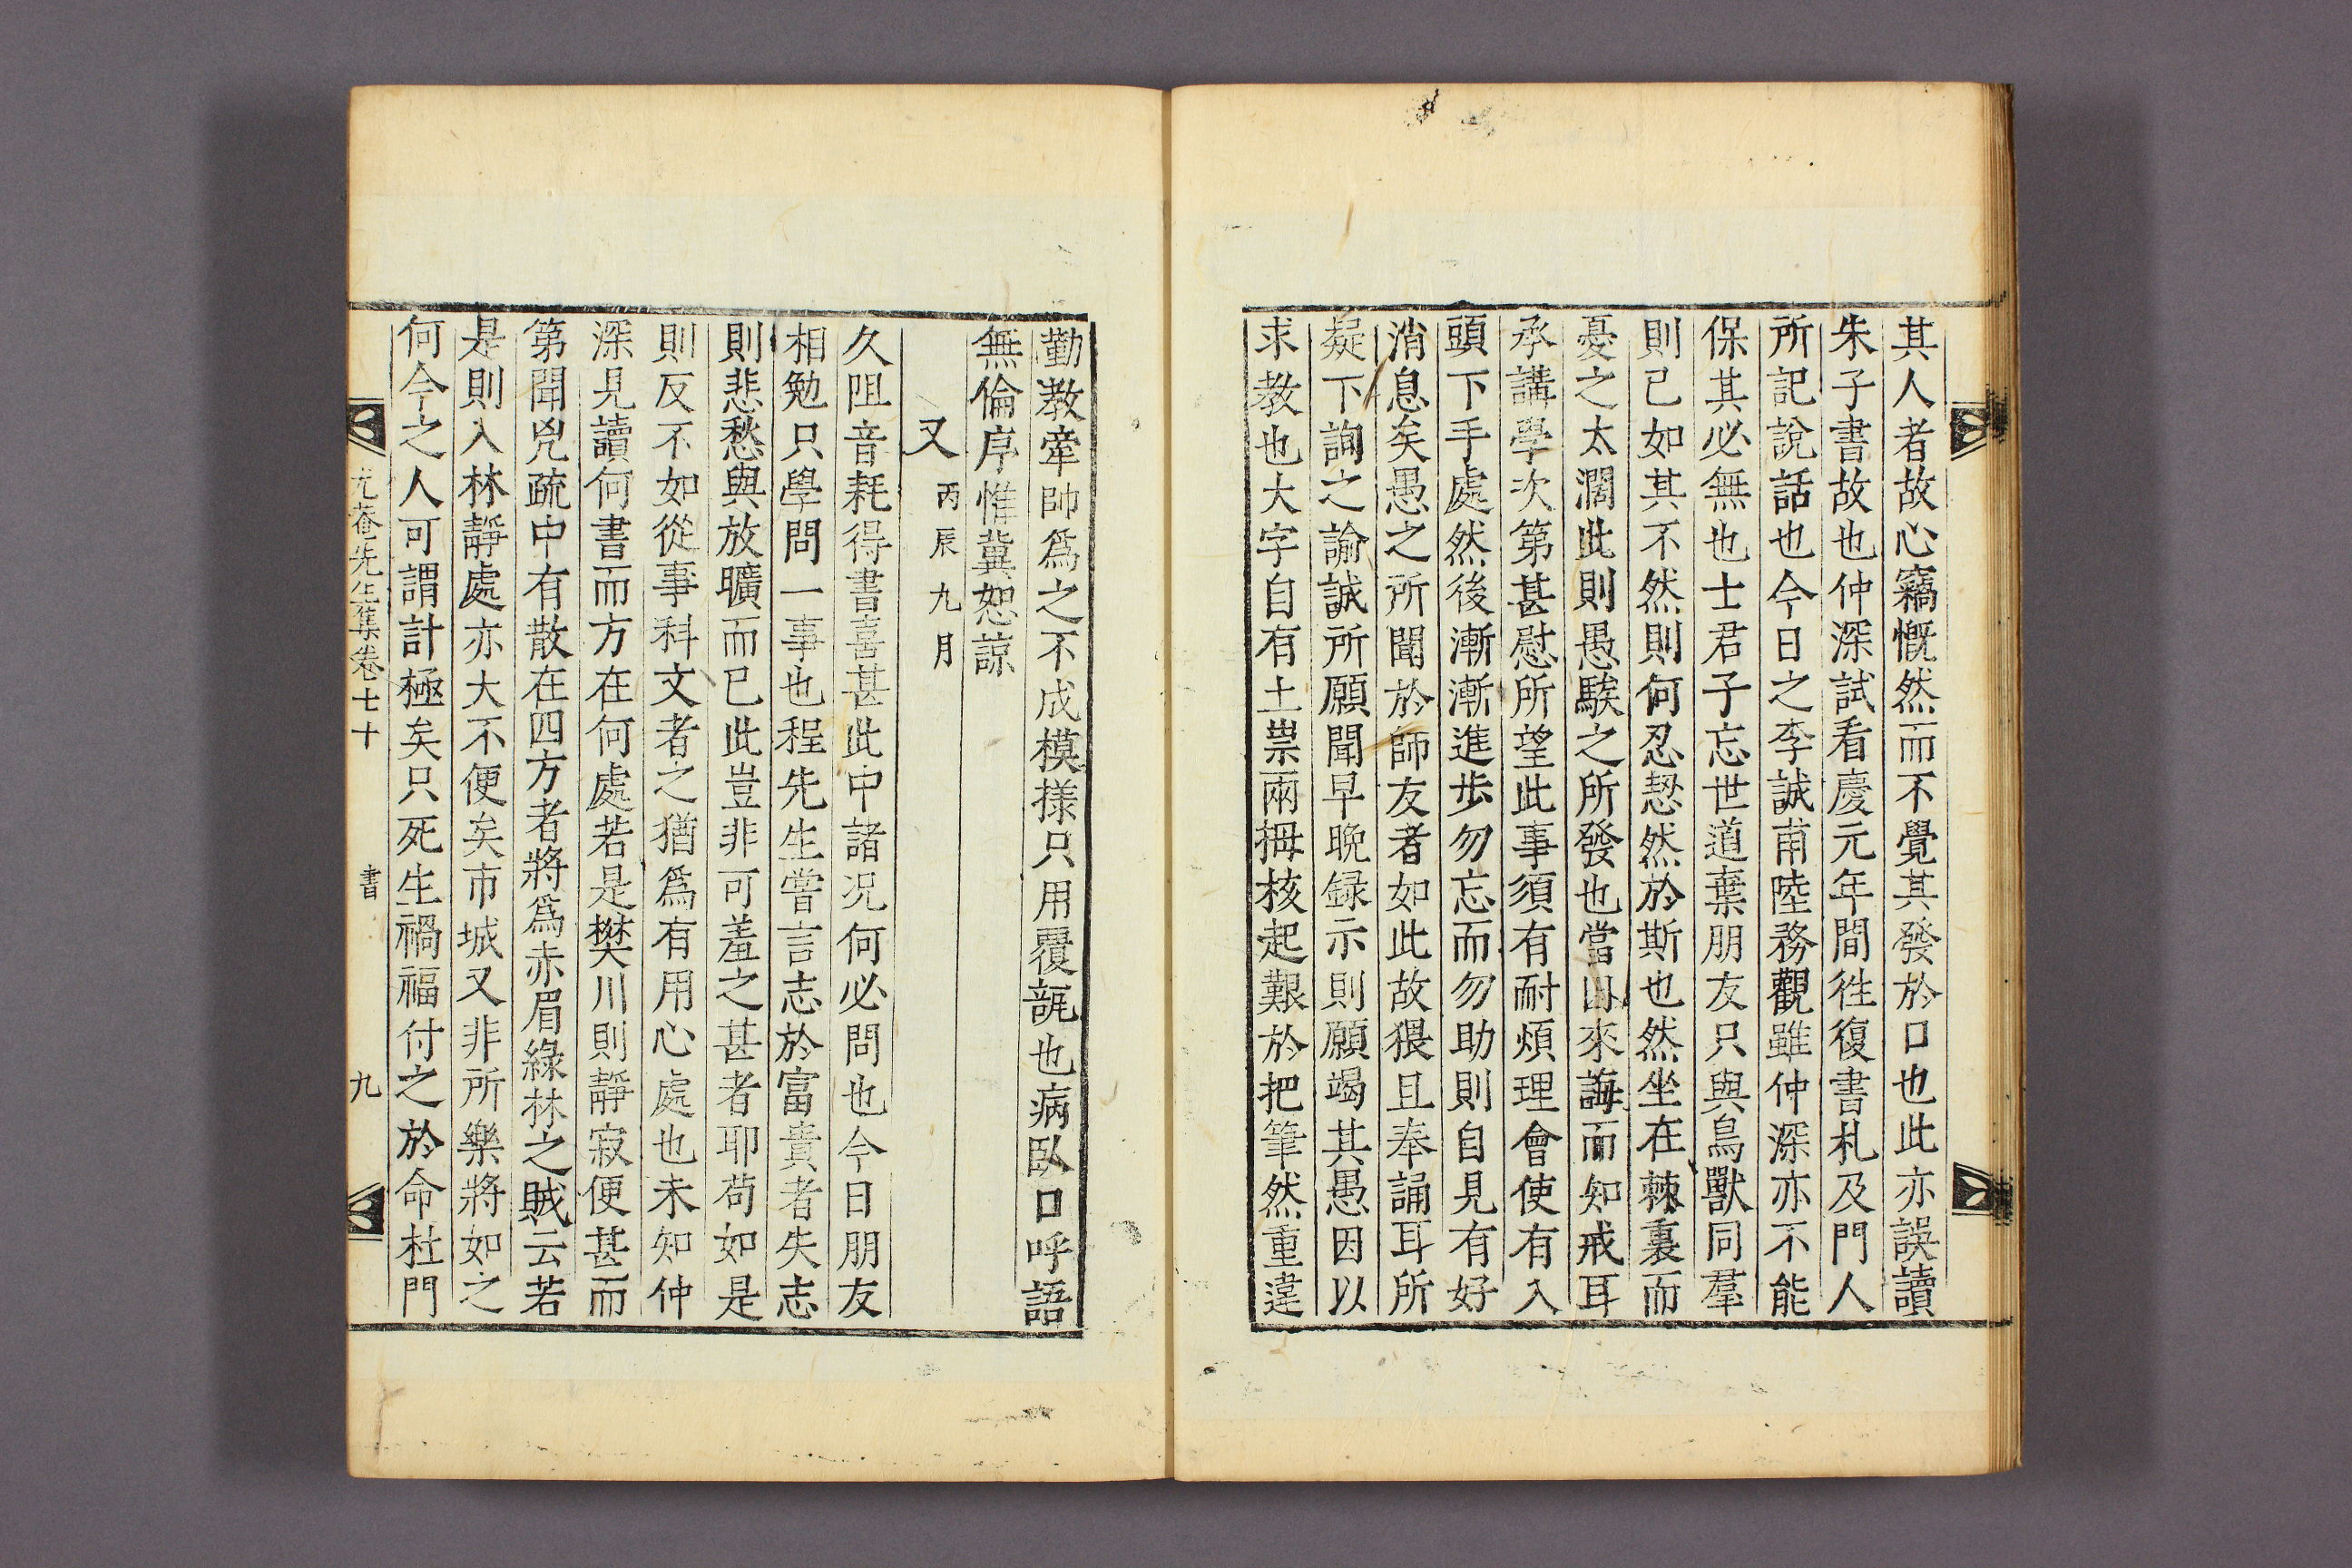 其人者故心竊慨然而不覺其發於口也此亦誤讀
朱子書故也仲深試看慶元年間徃復書札及門人
所記說話也今日之李誠甫陸務觀雖仲深亦不能
保其必無也士君子忘世道棄朋友只與鳥獸同羣
則已如其不然則何忍恝然於斯也然坐在棘裏而
憂之太濶此則愚騃之所發也當因來誨而知戒耳
承講學次第甚慰所望此事須有耐煩理會使有入
頭下手處然後漸漸進步勿忘而勿助則自見有好
消息矣愚之所聞於師友者如此故猥且奉誦耳所
疑下詢之諭誠所願聞早晩録示則願竭其愚因以
求教也大字自有土祟兩拇核起艱於把筆然重違
勤教牽帥爲之不成模㨾只用覆瓿也病臥口呼語
無倫序惟冀恕諒
又 丙辰九月
久阻音耗得書喜甚此中諸况何必問也今日朋友
相勉只學問一事也程先生嘗言志於富貴者失志
則悲愁與放曠而已此豈非可羞之甚者耶苟如是
則反不如從事科文者之猶爲有用心處也未知仲
深見讀何書而方在何處若是樊川則靜寂便甚而
第聞兇疏中有散在四方者將爲赤眉綠林之賊云若
是則入林靜處亦大不便矣市城又非所樂將如之
何今之人可謂計極矣只死生禍福付之於命杜門
尤菴先生集卷七十 書 九